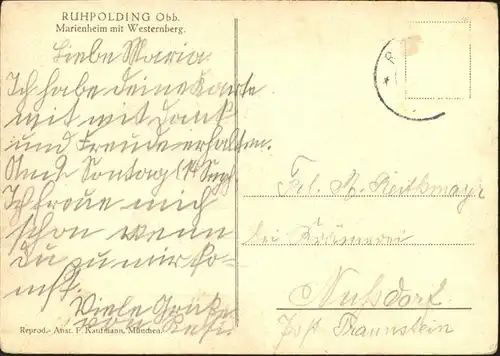 RUHPOLDING Obb.
Marienheim mit Westernberg.
Liebe Maria
Ich habe deine Karte
mit mit Dank
und Freude erhalten.
Sontag (1. Sep.
Ich freue mich
schon wenn
du zu mir ko-
mst.
Viele Grüße
von Resi.
Reprod.- Anst. F. Kaufmann, München
R
Frl. M. Reitkmayr
bei Krämerei
Nußdorf
Post Traunstein